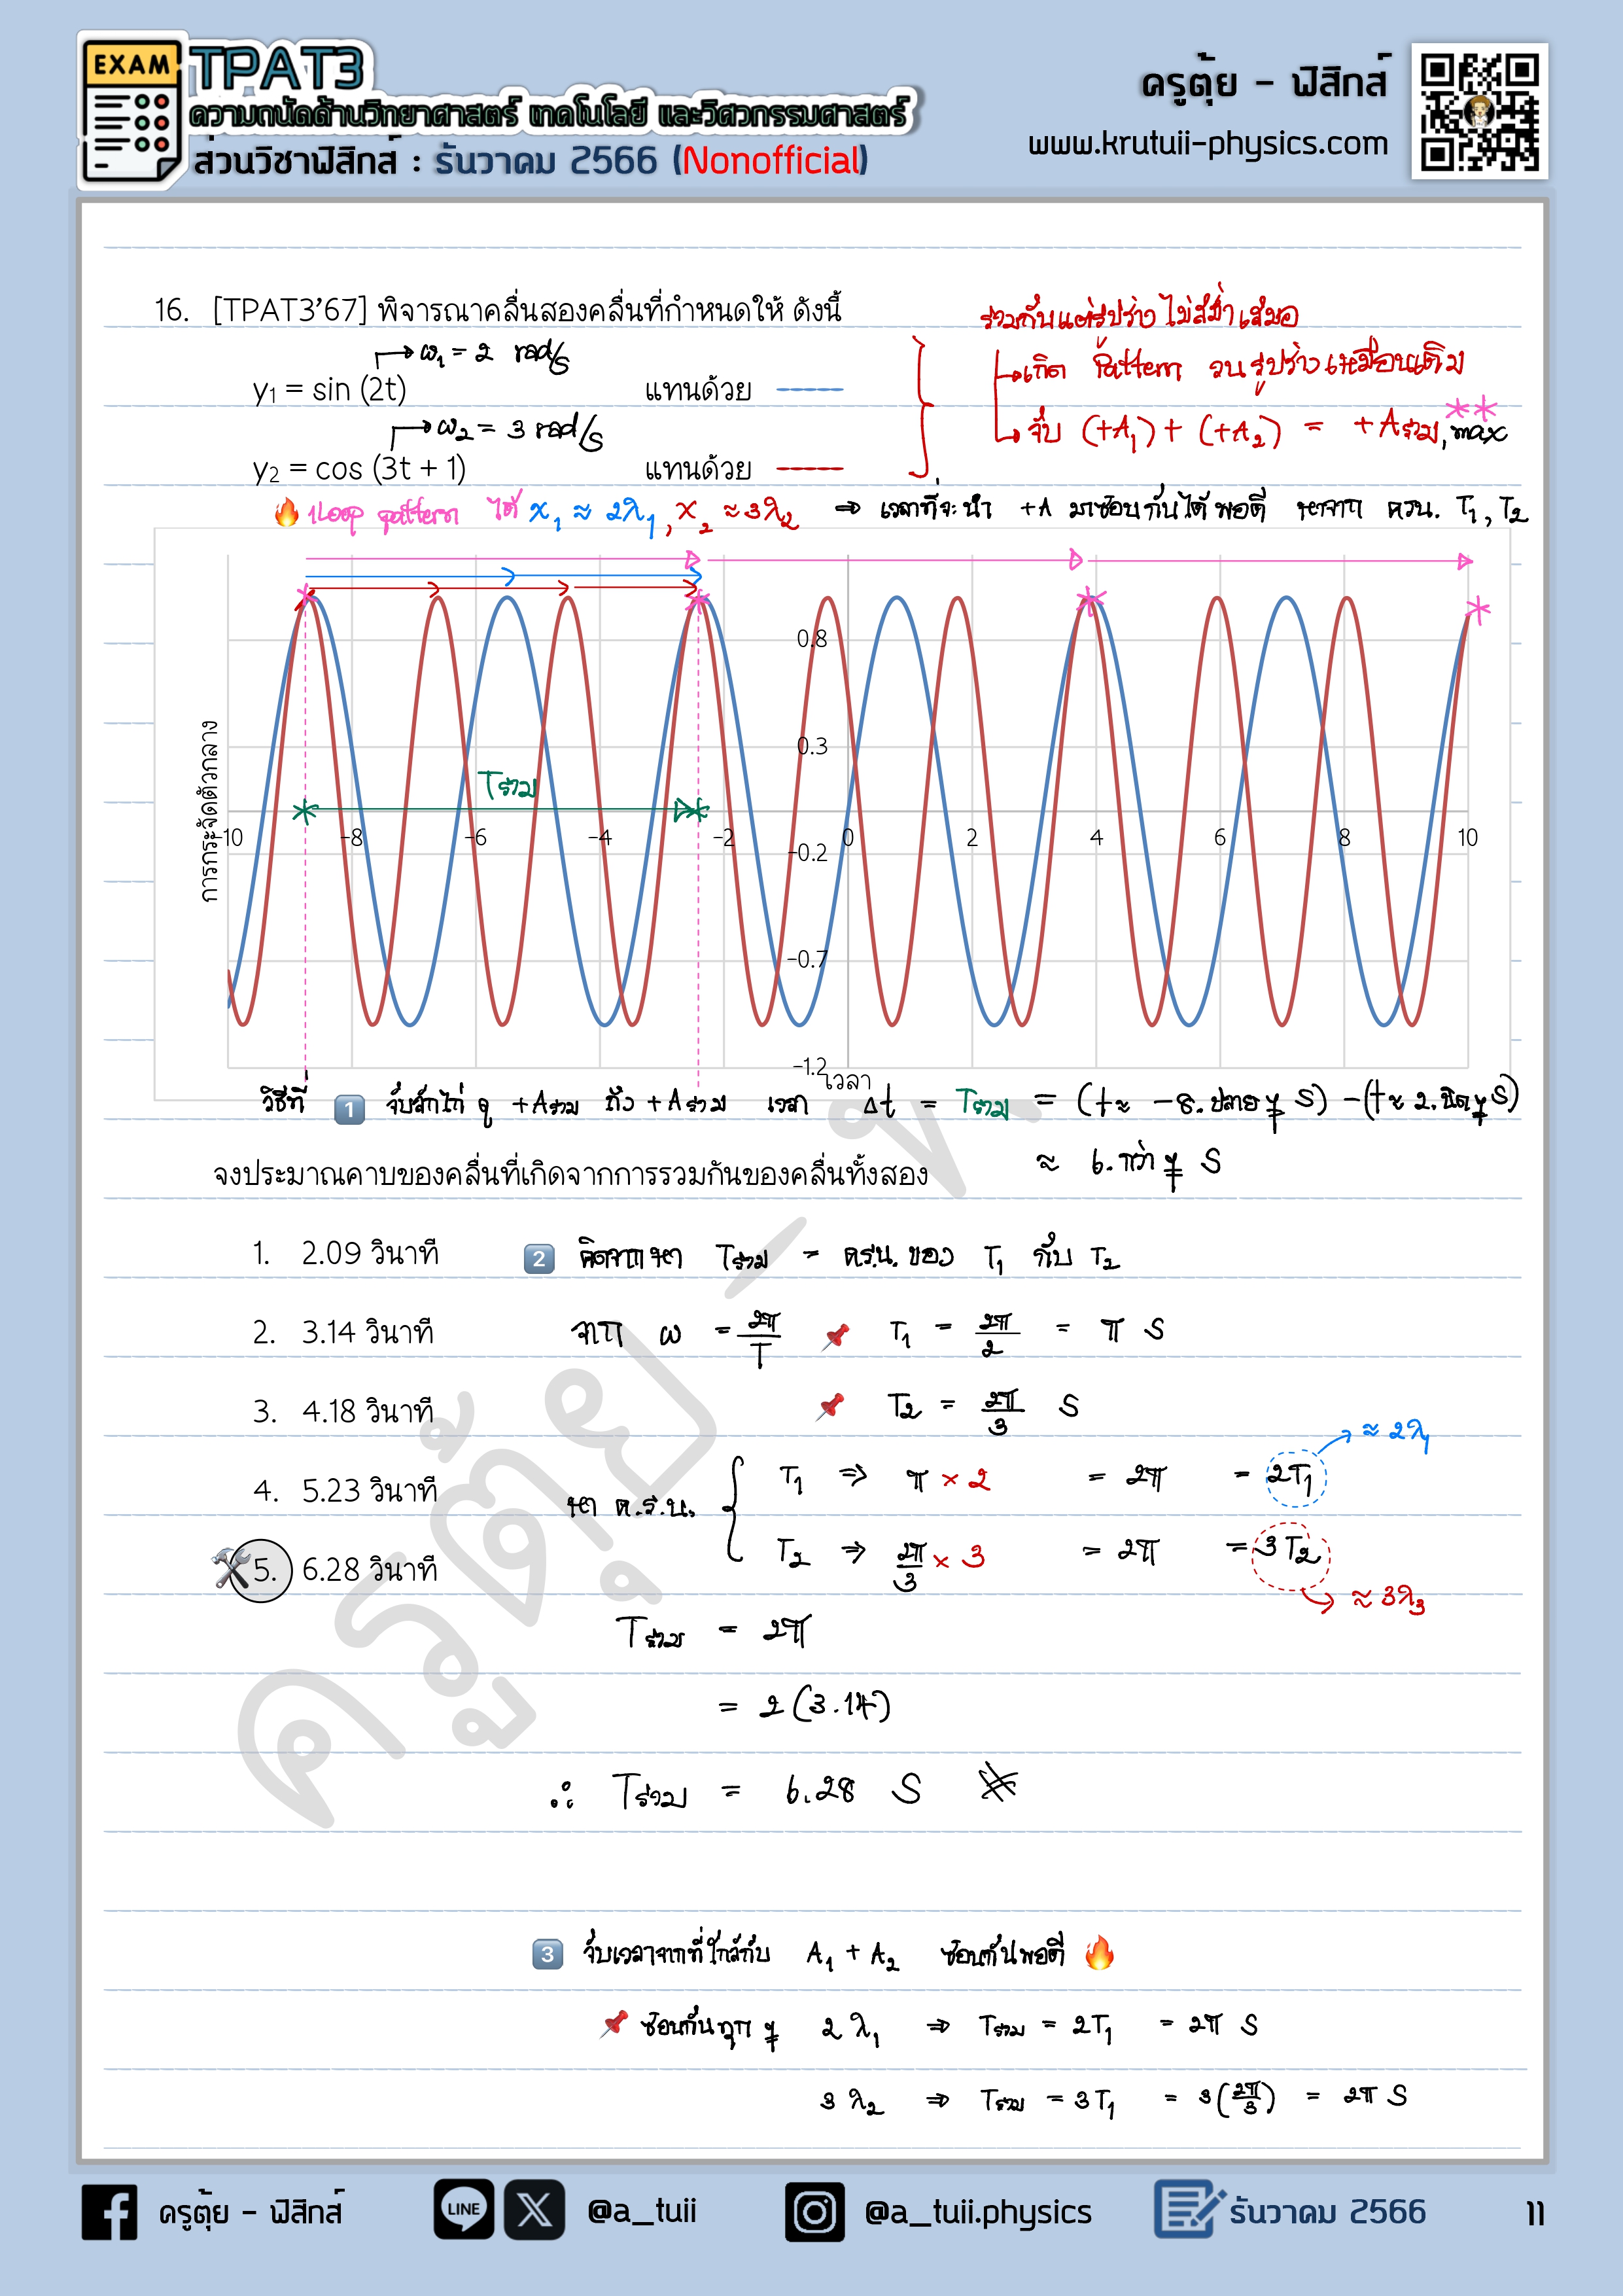 EXAM
TPAT3
ความถนัดด้านวิทยาศาสตร์ เทคโนโลยี และวิศวกรรมศาสตร์
ส่วนวิชาฟิสิกส์ : ธันวาคม 2566 (Nonofficial)
ครูตุ้ย - ฟิสิกส์
www.krutuii-physics.com
16. [TPAT3'67] พิจารณาคลื่นสองคลื่นที่กำหนดให้ ดังนี้
ω₁ = 2 rad/s
y₁ = sin (2t) แทนด้วย
ω₂ = 3 rad/s
y₂ = cos (3t + 1) แทนด้วย
รวมกันแต่รูปร่างไม่สม่ำเสมอ
เกิด Pattern วนรูปร่างเหมือนเดิม
จับ (+A₁) + (+A₂) = +Aรวม, max
1 Loop pattern ได้ x₁ ≈ 2λ₁, x₂ ≈ 3λ₂ ⇒ เวลาที่จะนำ +A มาซ้อนกันได้พอดี หาจาก ครน. T₁, T₂
การกระจัดตัวกลาง
0.8
0.3
Tรวม
-10 -8 -6 -4 -2 0 2 4 6 8 10
-0.2
-0.7
-1.2
เวลา
วิธีที่ 1 จับสักไก่ ดู +Aรวม ถึง +Aรวม เวลา Δt = Tรวม = (t ≈ -8.ปลายๆ s) - (t ≈ 2.นิดๆ s)
≈ 6.กว่าๆ s
จงประมาณคาบของคลื่นที่เกิดจากการรวมกันของคลื่นทั้งสอง
1. 2.09 วินาที
2. 3.14 วินาที
3. 4.18 วินาที
4. 5.23 วินาที
5. 6.28 วินาที
2 คิดจากหา Tรวม = ครน. ของ T₁ กับ T₂
จาก ω = 2π/T T₁ = 2π/2 = π s
T₂ = 2π/3 s
≈ 2λ₁
หา ค.ร.น.
T₁ ⇒ π × 2 = 2π = 2T₁
T₂ ⇒ 2π/3 × 3 = 2π = 3T₂
≈ 3λ₃
Tรวม = 2π
= 2(3.14)
∴ Tรวม = 6.28 s
3 จับเวลาจากที่ใกล้กับ A₁ + A₂ ซ้อนกันพอดี
ซ้อนกันทุกๆ 2λ₁ ⇒ Tรวม = 2T₁ = 2π s
3λ₂ ⇒ Tรวม = 3T₁ = 3(2π/3) = 2π s
ครูตุ้ย - ฟิสิกส์
LINE
@a_tuii
@a_tuii.physics
ธันวาคม 2566
11